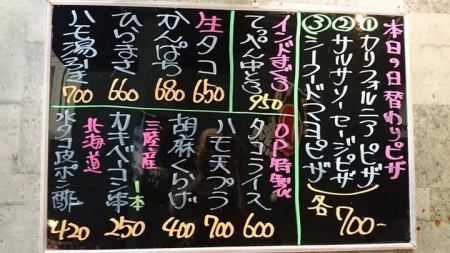 本日の日替わりピザ
①カリフォルニアピザ
②サルサソーセージピザ
③シーフードつくねピザ
各700-
インドまぐろ
てっぺん中とろ 950
生タコ 650
かんぱち 680
ひらまさ 660
ハモ湯びき 700
OP特製
タコライス 600
ハモ天プラ 700
胡麻くらげ 400
三陸産
カキベーコン串 1本 250
北海道
水タコ皮ポン酢 420